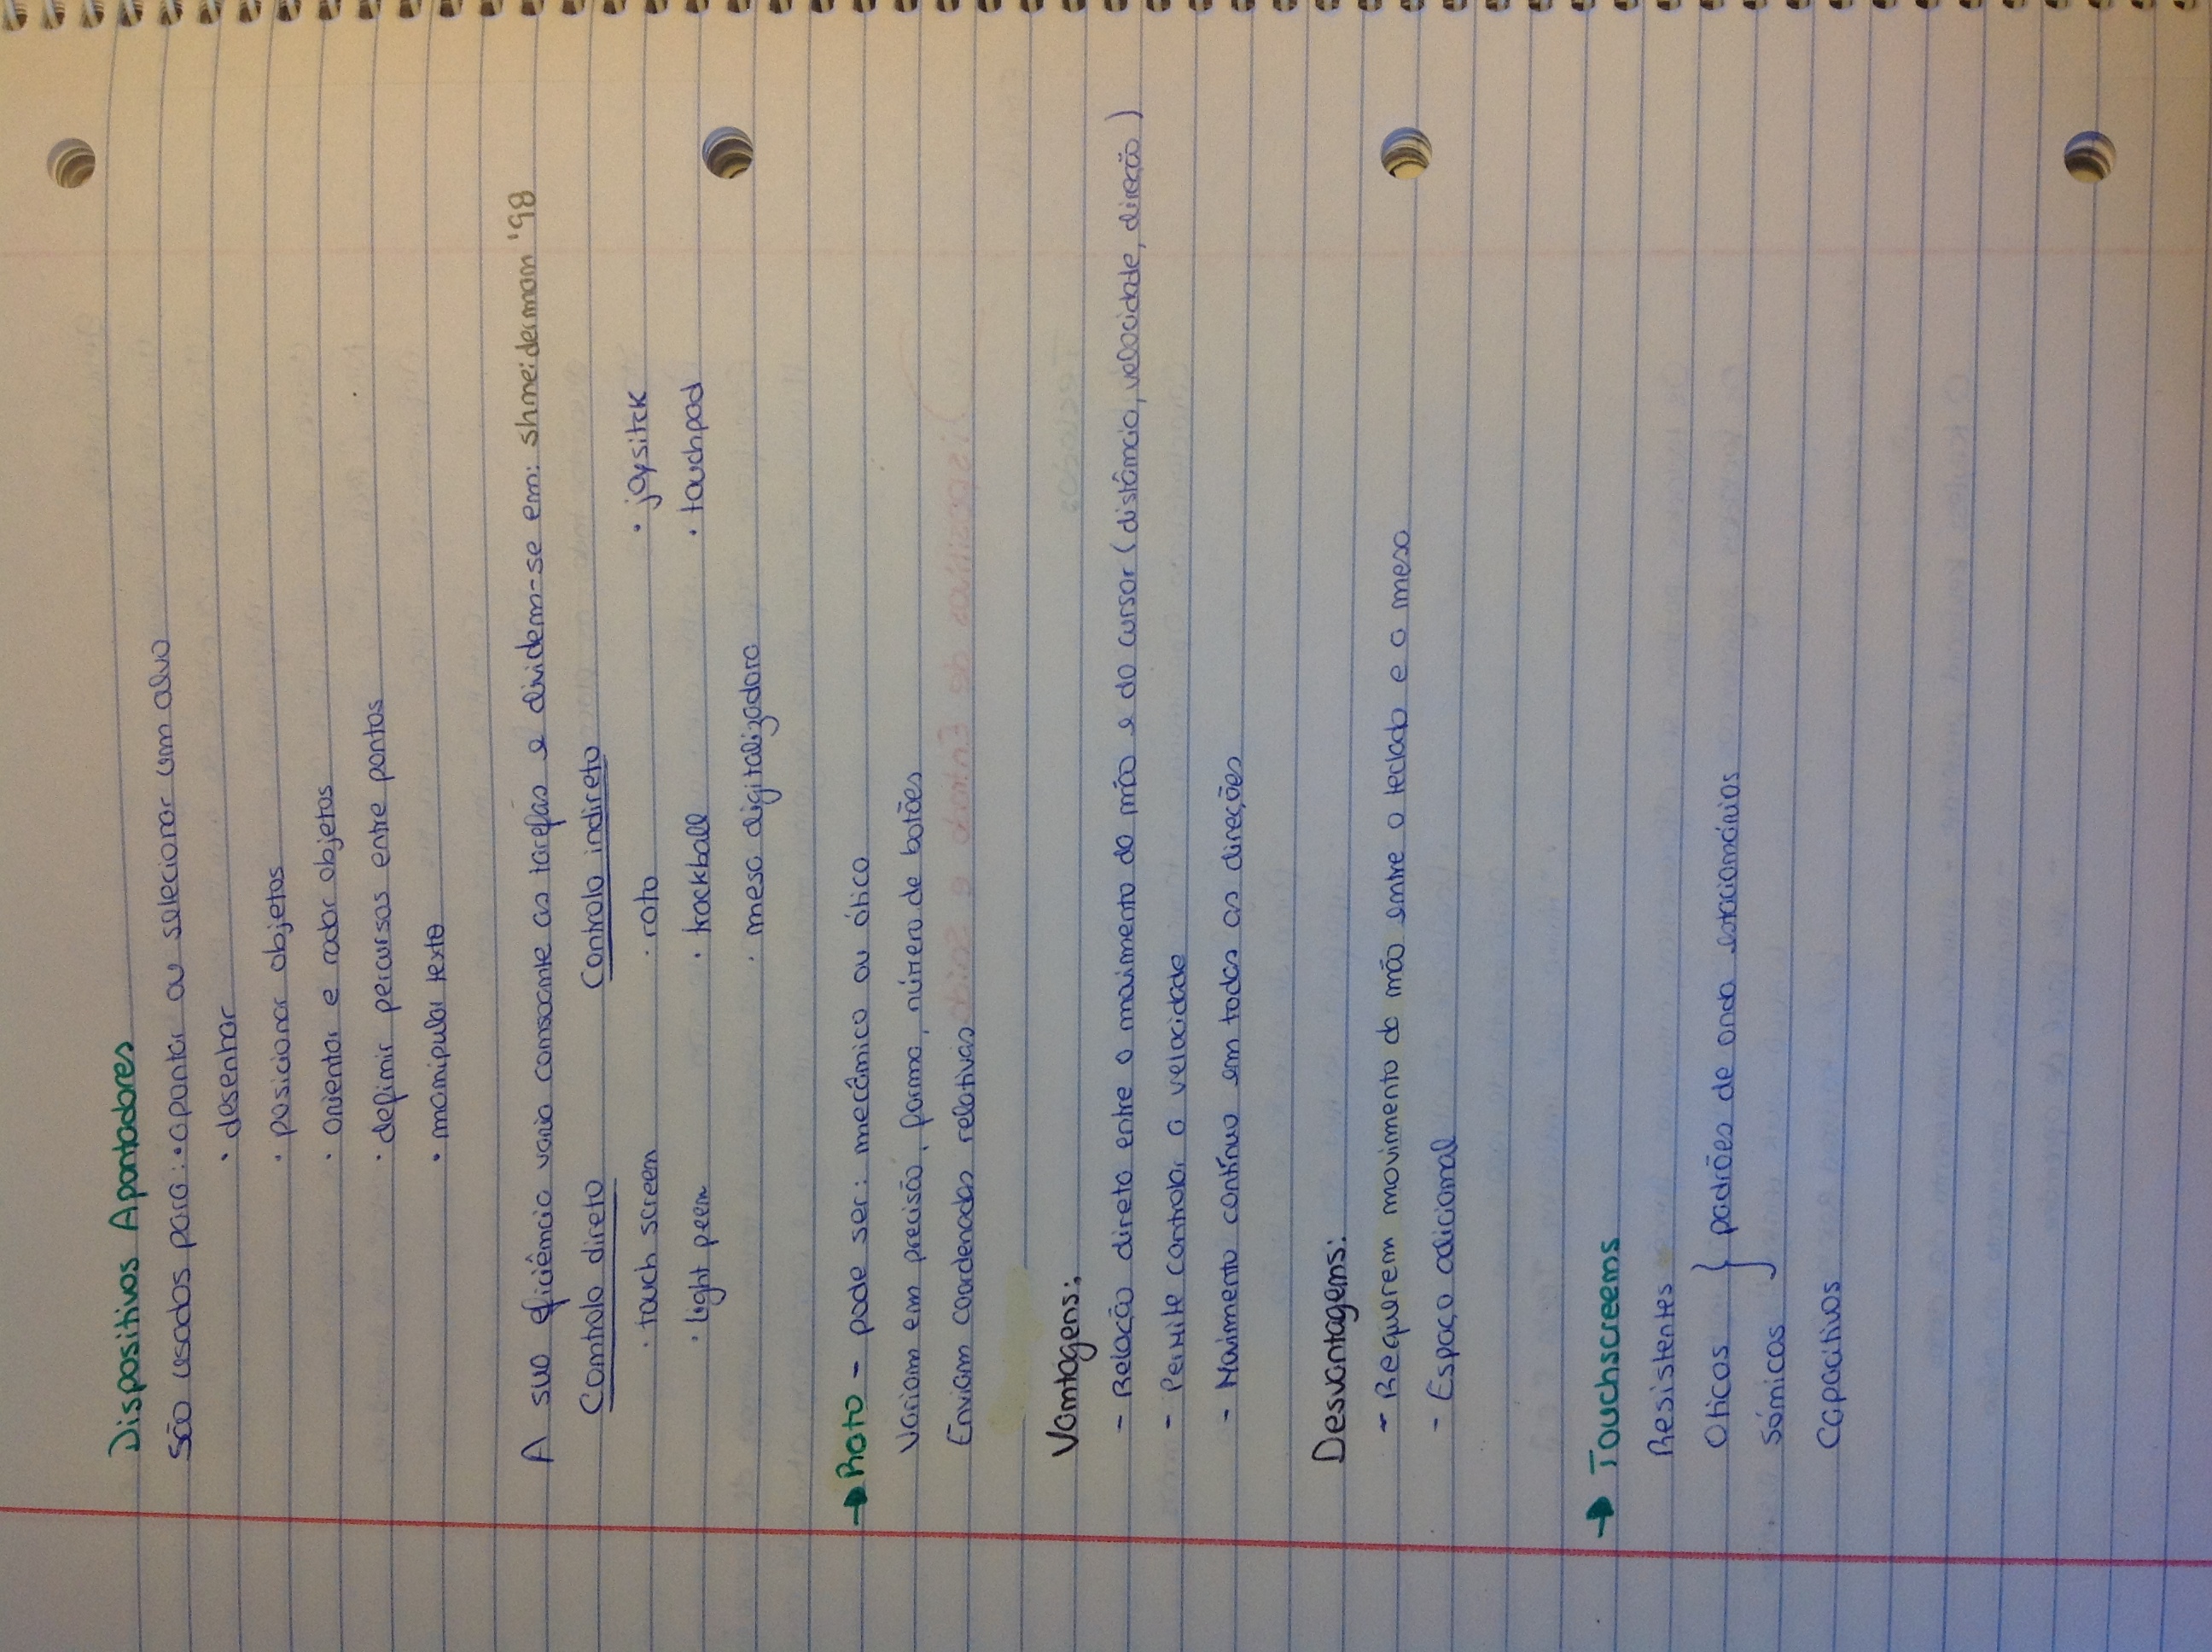 Dispositivos Apontadores
São usados para: • apontar ou selecionar um alvo
• desenhar
• posicionar objetos
• orientar e rodar objetos
• definir percursos entre pontos
• manipular texto
A sua eficiência varia consoante as tarefas e dividem-se em: Shneiderman '98
Controlo direto Controlo indireto
• touch screen • rato • joysitck
• light peen • trackball • touchpad
• mesa digitalizadora
→ Rato - pode ser: mecânico ou ótico
Variam em precisão, forma, número de botões
Enviam coordenadas relativas
Vantagens:
- Relação direta entre o movimento da mão e do cursor (distância, velocidade, direção)
- Permite controlar a velocidade
- Movimento contínuo em todas as direções
Desvantagens:
- Requerem movimento da mão entre o teclado e a mesa
- Espaço adicional
→ Touchscreens
Resistentes
Oticos } padrões de onda estacionários
Sónicos
Capacitivos